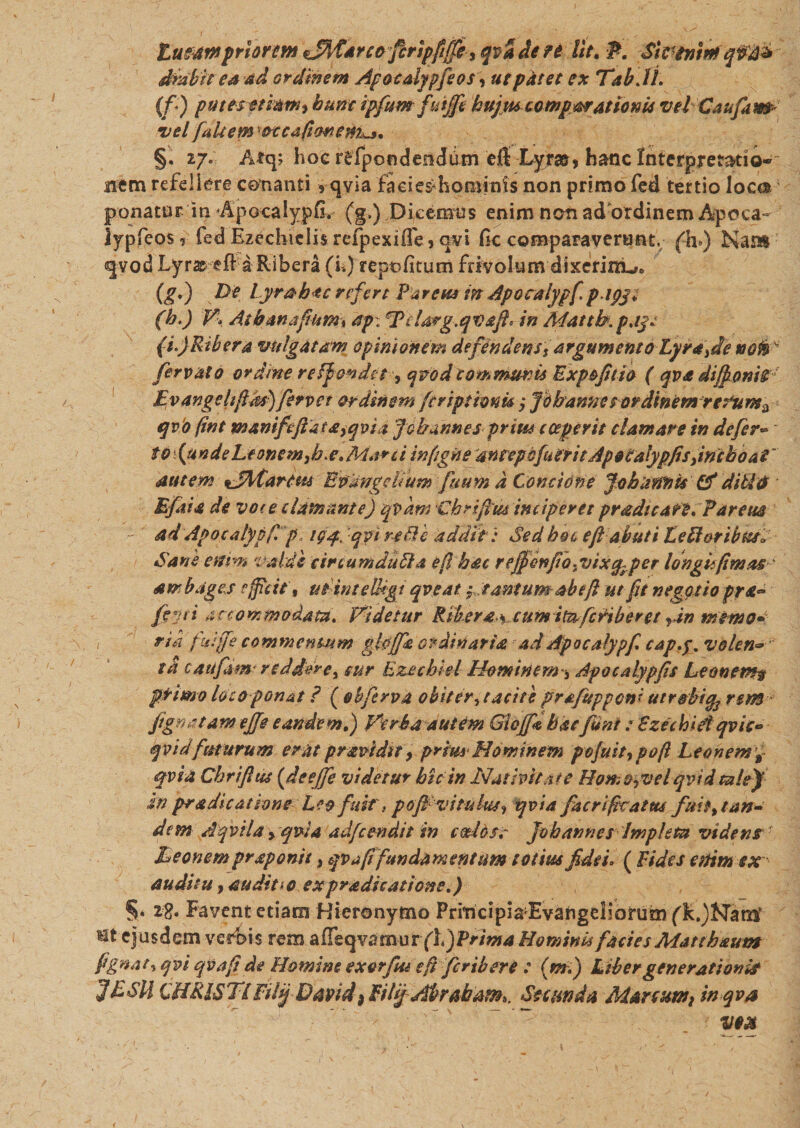 Lucam priorem Marco scripsisse, qvâ de re lit. P. Sic enim qvad-
drabit ea ad ordinem Apocalypseos, ut patet ex Tab. II.
(f.) putes etiam, hunc ipsum fuisse hujus comparationis vel Causam
vel saltem occasionem.
§. 27. Atq; hoc respondendum est Lyræ, hanc interpretatio-
nem refellere conanti, qvia facies hominis non primo sed tertio loco
ponatur in Apocalypsi. (g.) Dicemus enim non ad ordinem Apoca-
lypseos, sed Ezechielis respexisse, qvi sic comparaverunt. (h.) Nam
qvod Lyræ est à Riberâ (i.) repositum frivolum dixerim.
(g.) De Lyra hæc refert Pareus in Apocalyps. p. 193.
(h.) V. Athanasium, ap. Pelarg. qvæst. in Matth. p. 13.
(i.) Ribera vulgatam opinionem defendens, argumento Lyræ, de non
servato ordine respondet, qvod communis Expositio (qvæ disponit
Evangelistas) servet ordinem scriptionis; Johannes ordinem rerum,
qvo sint manifestatæ, qvia Johannes prius cœperit clamare in deser-
to (unde Leonem, h. e. Marci insigne anteposuerit Apocalypsis, inchoat
autem Marcus Evangelium suum à Concione Johannis & dicto
Esaiæ de voce clamante) qvàm Christus inciperet prædicare. Pareus
ad Apocalyps. p. 194. qvi rectè addit: Sed hoc est abuti Lectoribus.
Sanè enim valdè circumducta est hæc responsio, vixq; per longissimas
ambages efficit, ut intelligi qveat; tantum abest ut sit negotio præ-
senti accommodata. Videtur Ribera, cum ita scriberet, in memo-
riâ fuisse commentum glossæ ordinariæ ad Apocalyps. cap. 5. volen-
tâ causam reddere, cur Ezechiel Hominem, Apocalypsis Leonem,
primo loco ponat? (observa obiter, tacitè præsupponi utrobiq; rem
signatam esse eandem.) Verba autem Glossæ hæc sunt: Ezechiel qvic-
qvid futurum erat prævidit, prius Hominem posuit, post Leonem,
qvia Christus (deesse videtur hîc in Nativitate Homo, vel qvid tale)
in prædicatione Leo fuit, post vitulus, qvia sacrificatus fuit, tan-
dem Aqvila, qvia adscendit in cœlos: Johannes Impleta videns
Leonem præponit, qvasi fundamentum totius fidei. (Fides enim ex
auditu, auditio ex prædicatione.)
§. 28. Favent etiam Hieronymo Principia Evangeliorum (k.) Nam
ut ejusdem verbis rem asseqvamur (l.) Prima Hominis facies Matthæum
signat, qvi qvasi de Homine exorsus est scribere: (m.) Liber generationis
JESU CHRISTI Filij David, Filij Abraham. Secunda Marcum, in qva
vox